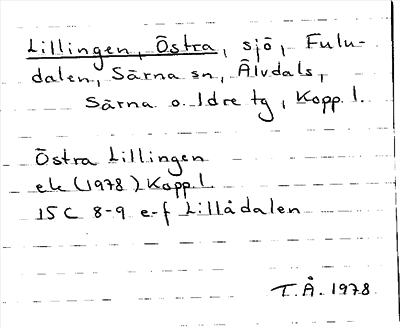 Lillingen, Östra, sjö, Fulu-
dalen, Särna sn, Älvdals,
Särna o. Idre tg, Kopp. l.
Östra Lillingen
ek (1978) Kopp. l.
15 C 8-9 e-f Lillådalen
T. Å. 1978